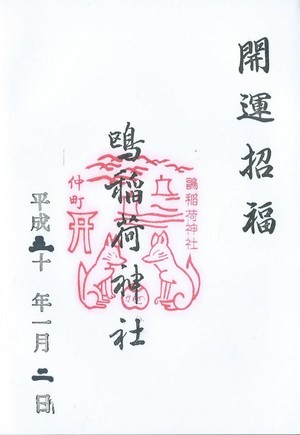 開運招福
鷗稲荷神社
鴎稲荷神社
仲町
平成三十年一月二日